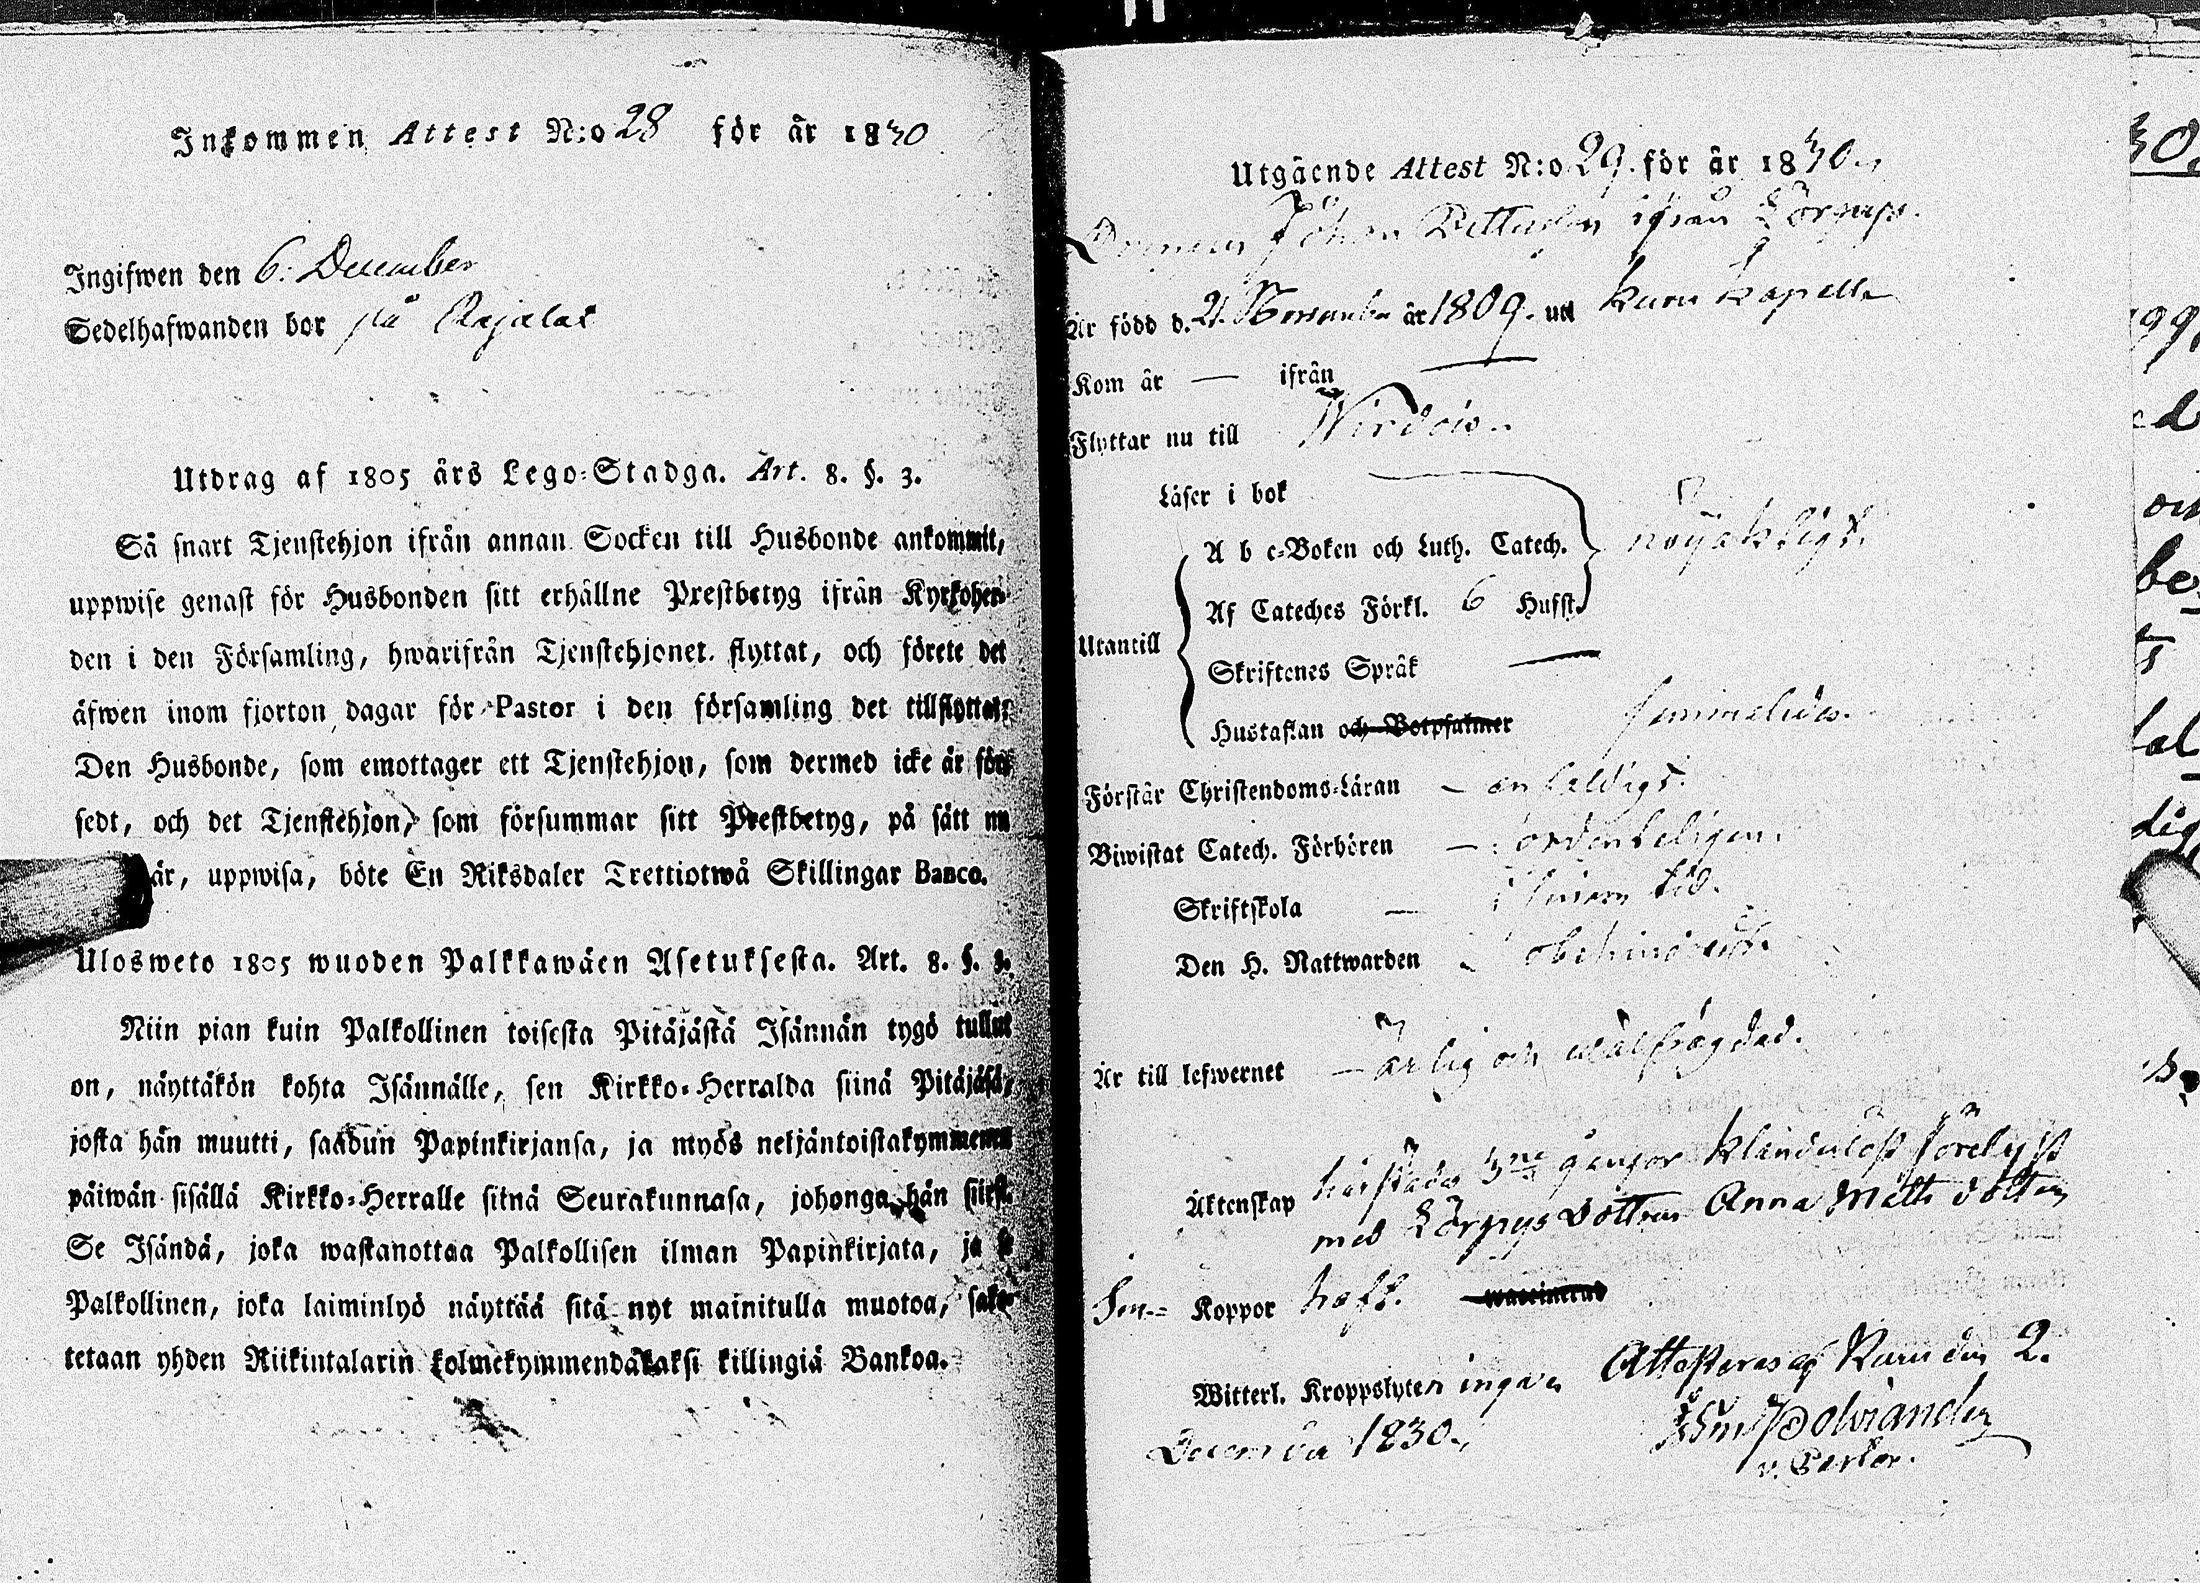 Inkommen Attest N:o 28 för år 1830
Ingifwen den 6. December
Sedelhafwanden bor på Rajalax
Utdrag af 1805 års Lego-Stadga. Art. 8. §. 3.
Så snart Tjenstehjon ifrån annan Socken till Husbonde ankommit,
uppwise genast för Husbonden sitt erhållne Prestbetyg ifrån Kyrkoher-
den i den Församling, hwarifrån Tjenstehjonet flyttat, och förete det
äfwen inom fjorton dagar för Pastor i den församling det tillflyttat.
Den Husbonde, som emottager ett Tjenstehjon, som dermed icke är för-
sedt, och det Tjenstehjon, som försummar sitt Prestbetyg, på sätt nu
är, uppwisa, böte En Riksdaler Trettiotwå Skillingar Banco.
Ulosweto 1805 wuoden Palkkawäen Asetuksesta. Art. 8. §. 3.
Niin pian kuin Palkollinen toisesta Pitäjästä Isännän tygö tullut
on, näyttäkön kohta Isännälle, sen Kirkko-Herralda siinä Pitäjäsä,
josta hän muutti, saadun Papinkirjansa, ja myös neljäntoistakymmenen
päiwän sisällä Kirkko-Herralle siinä Seurakunnasa, johonga hän siirsi.
Se Isändä, joka wastanottaa Palkollisen ilman Papinkirjata, ja se
Palkollinen, joka laiminlyö näyttää sitä nyt mainitulla muotoa, sako-
tetaan yhden Riikintalarin kolmekymmendäkaksi killingiä Bankoa.
Utgående Attest N:o 29. för år 1830.
Drengen Johan ifrån
Är född d. 21 November år 1809. uti Kuru Kapell
Kom år — ifrån —
Flyttar nu till Wirdois.
Läser i bok
A b c-Boken och Luth. Catech. nöjaktigt.
Af Cateches Förkl. 6 Hufst.
Utantill
Skriftenes Språk —
Hustaflan och Botpsalmer
Förstår Christendoms-Läran — enfaldigt.
Biwistat Catech. Förhören — ordenteligen.
Skriftskola — i sinom tid.
Den H. Nattwarden obehindrad.
Är till lefwernet — ärlig och wälfrägdad.
Äktenskap härstädes 3ne gångor klanderlöst förelyst
med dottren Anna Matts dotter
Koppor haft. waccinerad
Witterl. Kroppslyten inga. Attesteras af Kuru den 2.
December 1830.
v. Pastor.